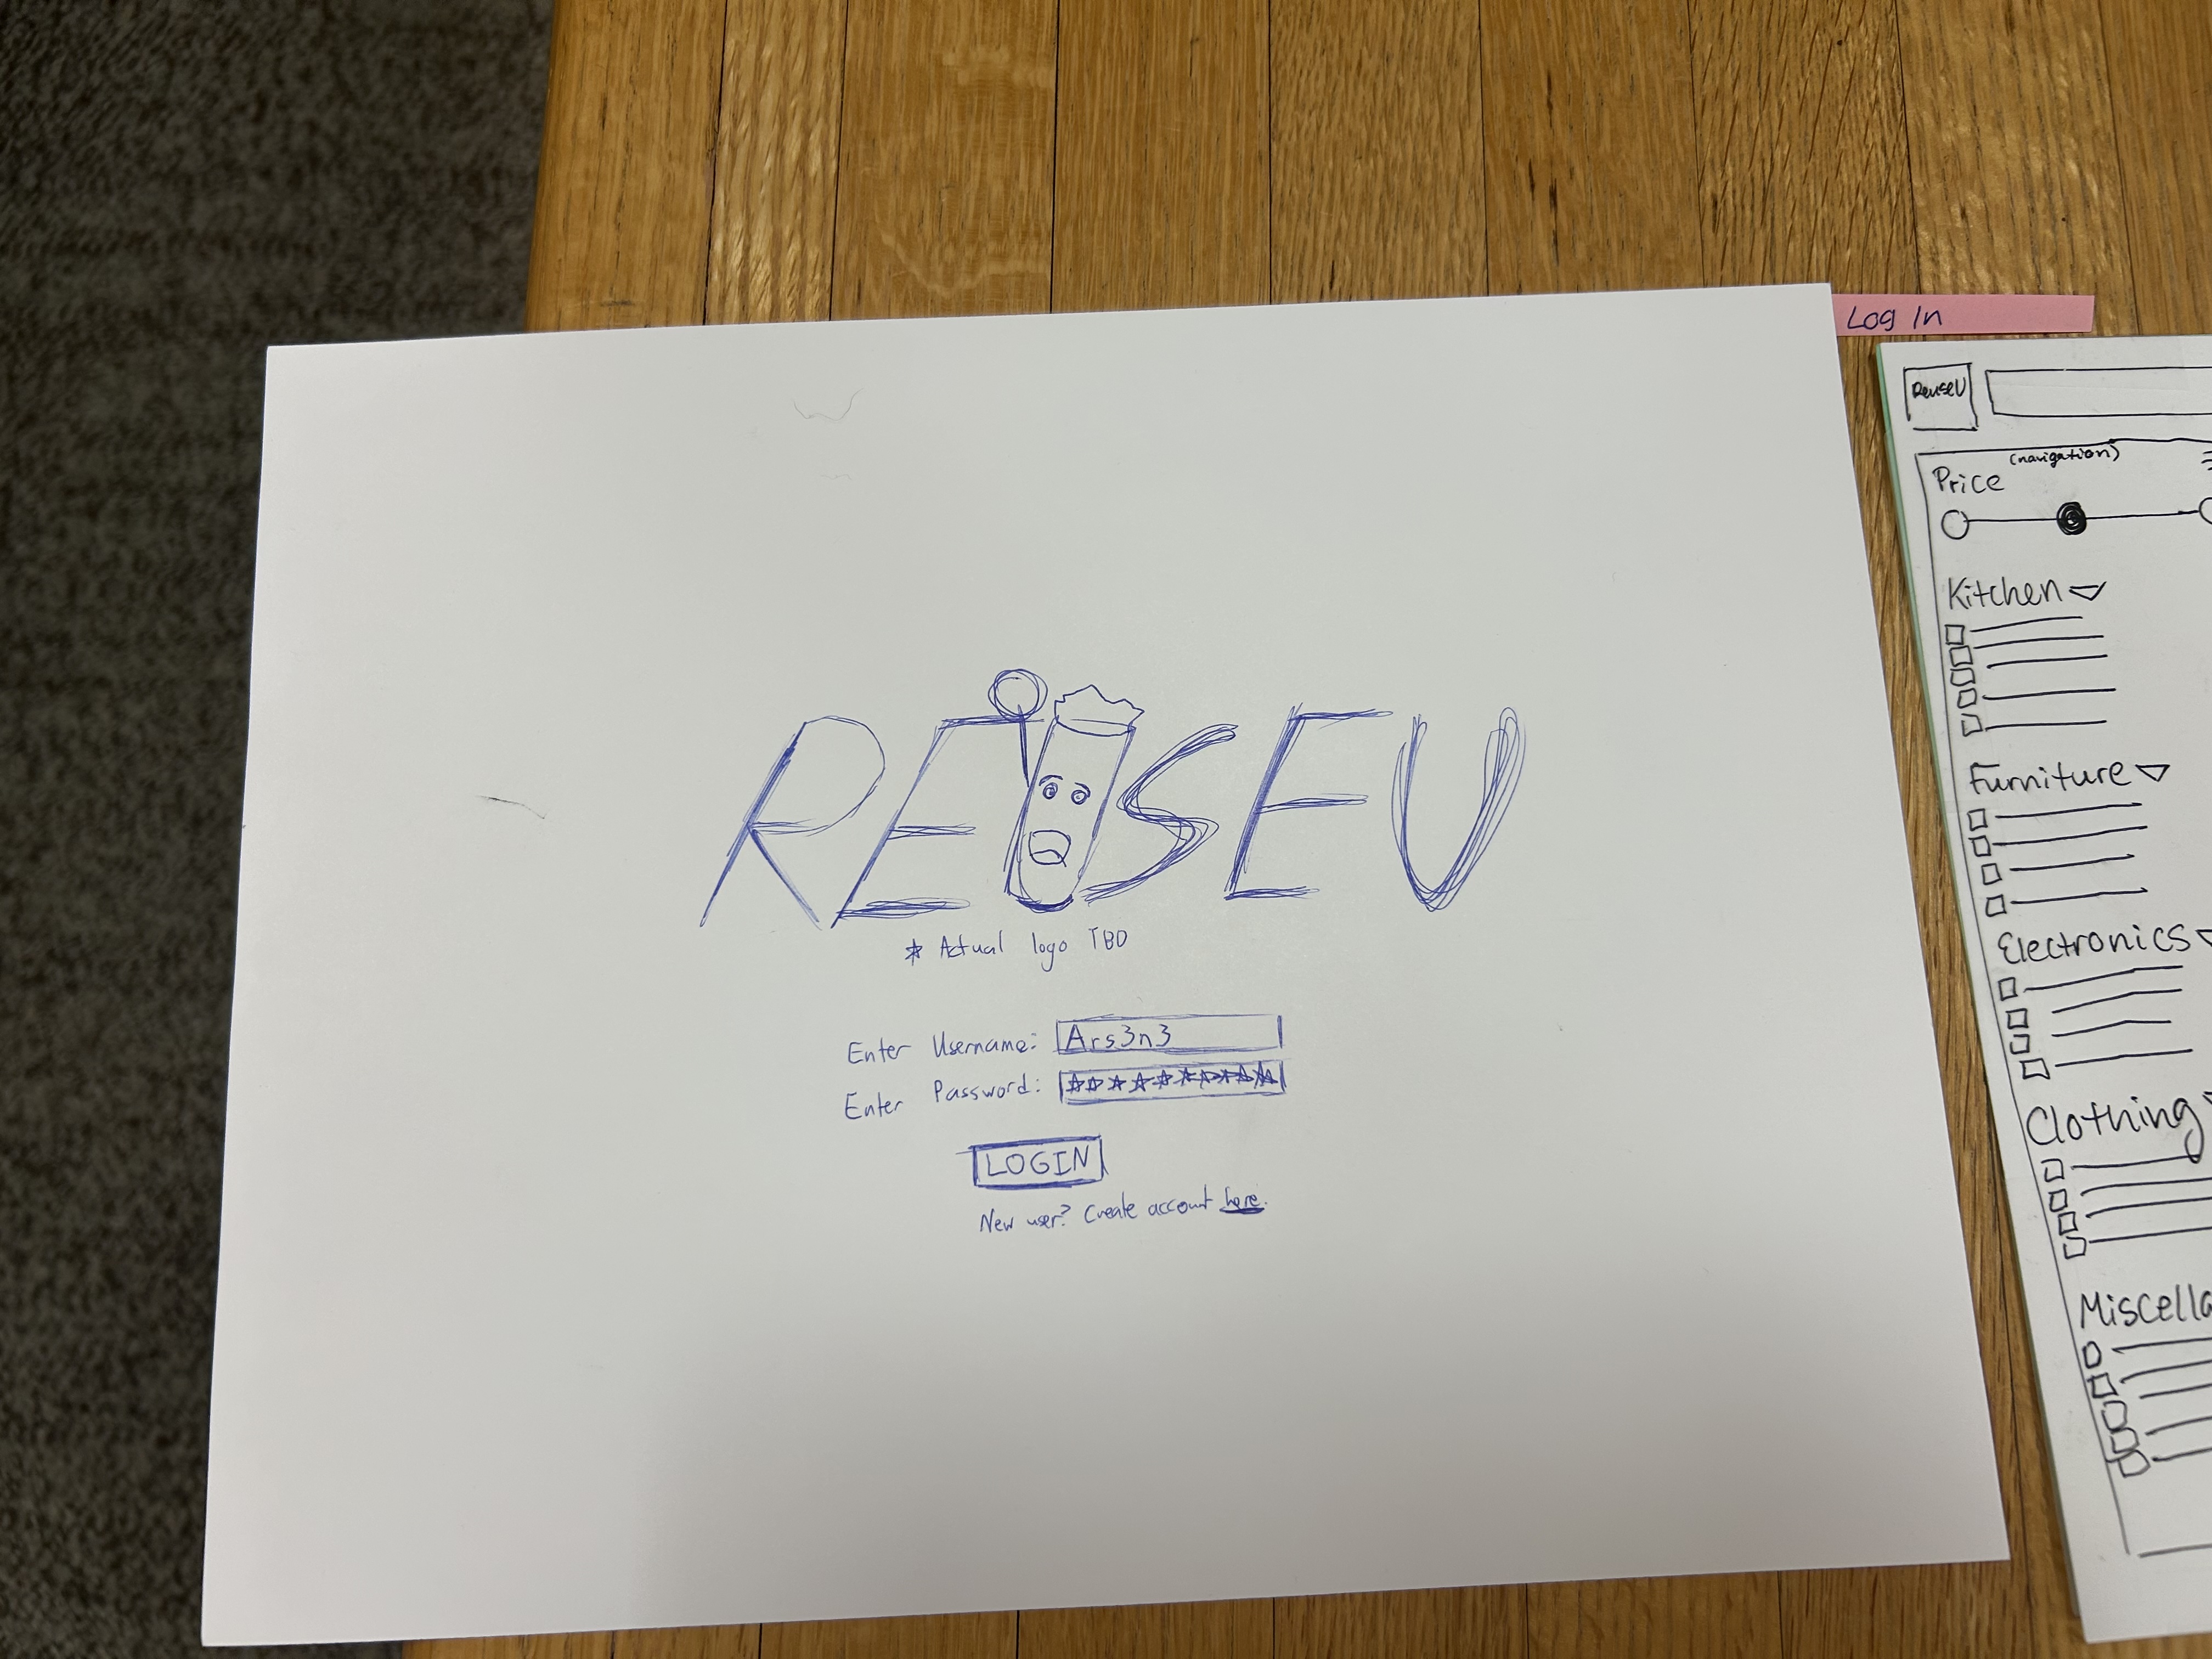 RESEU
* Actual logo TBD
Enter Username: Ars3n3
Enter Password: **********
LOGIN
New user? Create account here.
Log In
ReuseU
Price
(navigation)
Kitchen
Furniture
Electronics
Clothing